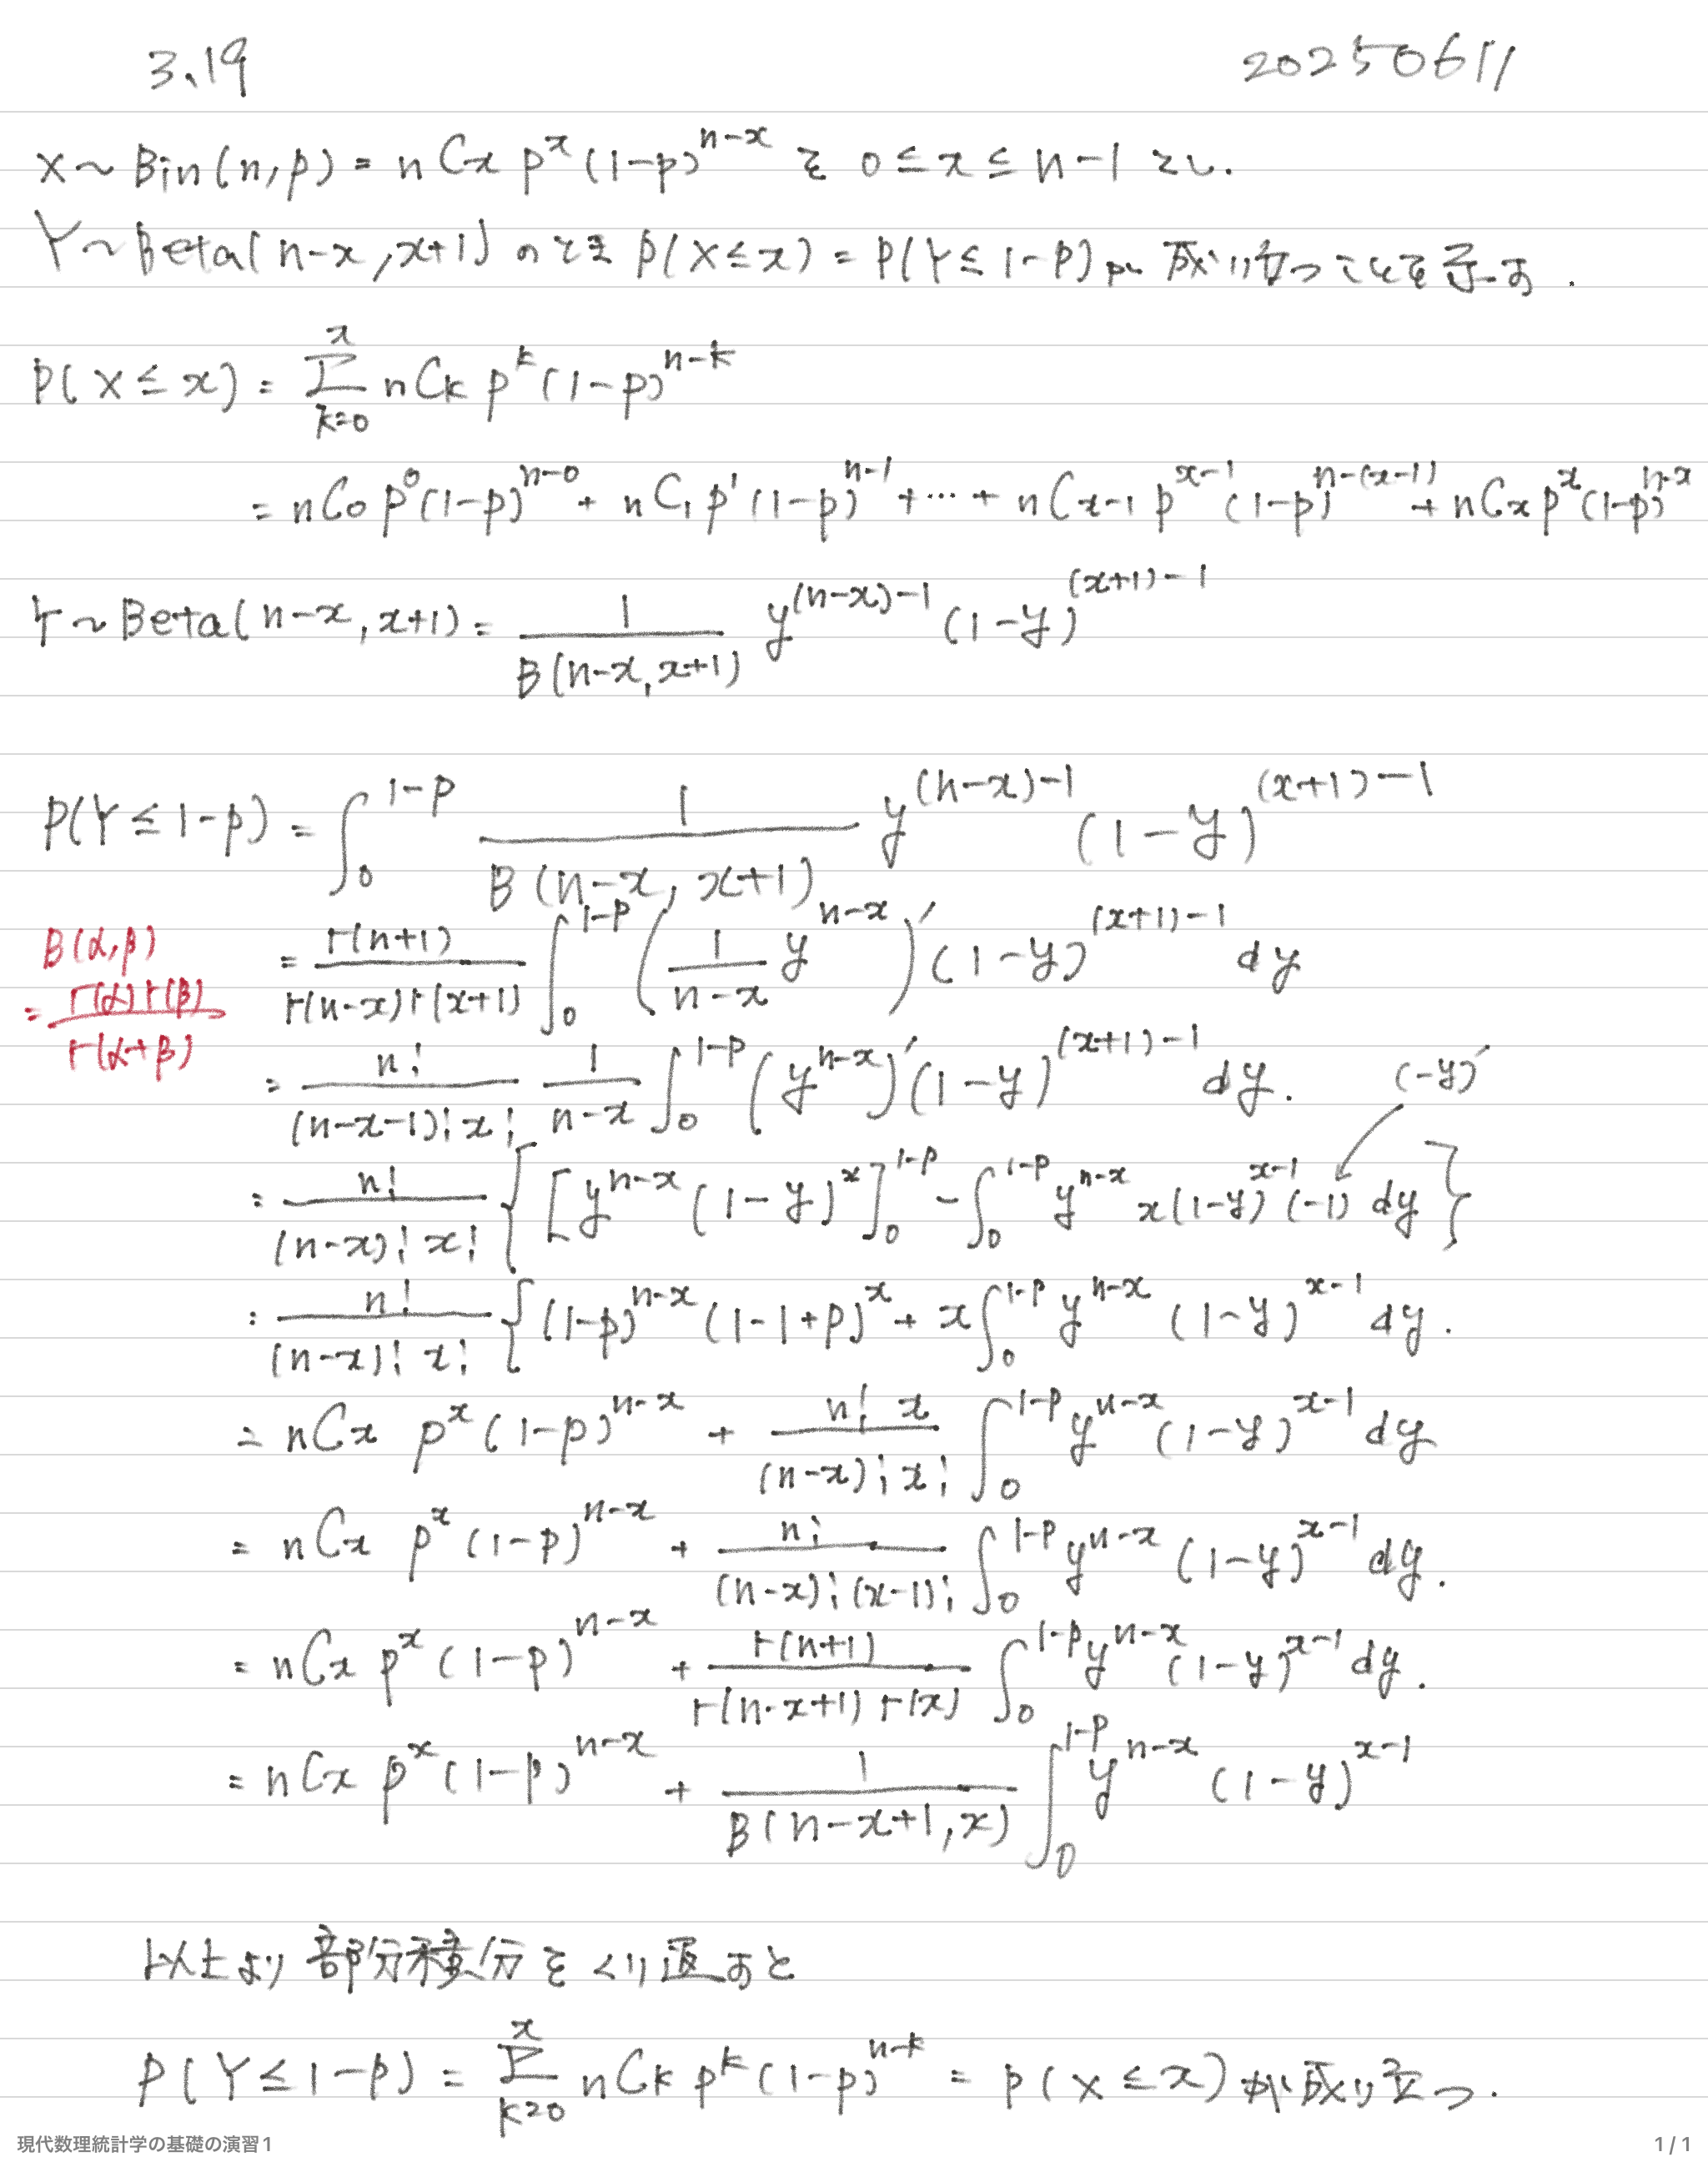 3.19 20250611
X ~ Bin(n,p) = nCx p^x (1-p)^{n-x} を 0 ≤ x ≤ n-1 とし.
Y ~ Beta(n-x, x+1) のとき P(X ≤ x) = P(Y ≤ 1-p) が 成り立つことを示す.
P(X ≤ x) = Σ_{k=0}^{x} nCk p^k (1-p)^{n-k}
= nC0 p^0 (1-p)^{n-0} + nC1 p^1 (1-p)^{n-1} + … + nCx-1 p^{x-1} (1-p)^{n-(x-1)} + nCx p^x (1-p)^{n-x}
Y ~ Beta(n-x, x+1) = \frac{1}{B(n-x, x+1)} y^{(n-x)-1} (1-y)^{(x+1)-1}
P(Y ≤ 1-p) = ∫_0^{1-p} \frac{1}{B(n-x, x+1)} y^{(n-x)-1} (1-y)^{(x+1)-1}
B(α,β) = \frac{Γ(α)Γ(β)}{Γ(α+β)}
= \frac{Γ(n+1)}{Γ(n-x)Γ(x+1)} ∫_0^{1-p} (\frac{1}{n-x} y^{n-x})' (1-y)^{(x+1)-1} dy
= \frac{n!}{(n-x-1)! x!} \frac{1}{n-x} ∫_0^{1-p} (y^{n-x})' (1-y)^{(x+1)-1} dy. (-y)'
= \frac{n!}{(n-x)! x!} { [y^{n-x} (1-y)^x]_0^{1-p} - ∫_0^{1-p} y^{n-x} x(1-y)^{x-1} (-1) dy }
= \frac{n!}{(n-x)! x!} { (1-p)^{n-x} (1-1+p)^x + x ∫_0^{1-p} y^{n-x} (1-y)^{x-1} dy.
= nCx p^x (1-p)^{n-x} + \frac{n! x}{(n-x)! x!} ∫_0^{1-p} y^{n-x} (1-y)^{x-1} dy
= nCx p^x (1-p)^{n-x} + \frac{n!}{(n-x)! (x-1)!} ∫_0^{1-p} y^{n-x} (1-y)^{x-1} dy.
= nCx p^x (1-p)^{n-x} + \frac{Γ(n+1)}{Γ(n-x+1) Γ(x)} ∫_0^{1-p} y^{n-x} (1-y)^{x-1} dy.
= nCx p^x (1-p)^{n-x} + \frac{1}{B(n-x+1, x)} ∫_0^{1-p} y^{n-x} (1-y)^{x-1}
以上より 部分積分をくり返すと
P(Y ≤ 1-p) = Σ_{k=0}^{x} nCk p^k (1-p)^{n-k} = P(X ≤ x) が成り立つ.
現代数理統計学の基礎の演習1 1 / 1